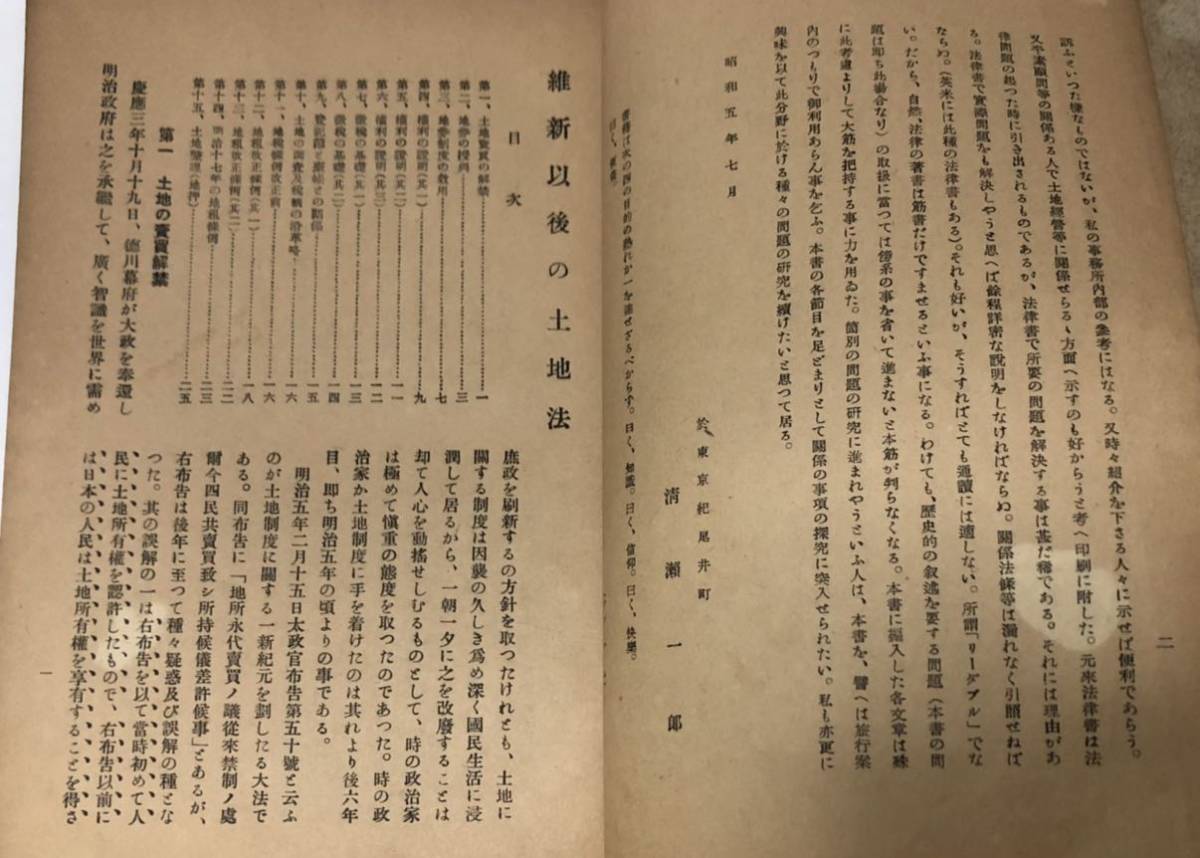 二
訴ふそいつた樣なものではないが、私の事務所内部の參考にはなる。又時々紹介を下さる人々に示せば便利であらう。
又平素顧問等の關係ある人で土地經營等に關係せらるゝ方面へ示すのも好からうと考へ印刷に附した。元來法律書は法
律問題の起つた時に引き出されるものであるが、法律書で所要の問題を解決する事は甚だ稀である。それには理由があ
る。法律書で實際問題をも解決しやうと思へば餘程詳密な說明をしなければならぬ。關係法條等は漏れなく引照せねば
ならぬ。(英米には此種の法律書もある)。それも好いが、そうすればとても通讀には適しない。所謂「リーダブル」でな
い。だから、自然、法律の著書は筋書だけですませるといふ事になる。わけても、歷史的の叙述を要する問題(本書の問
題は卽ち此場合なり)の取扱に當つては傍系の事を省いて進まないと本筋が判らなくなる。本書に編入した各文章は殊
に此考慮よりして大筋を把持する事に力を用ゐた。箇別の問題の研究に進まれやうといふ人は、本書を、譬へは旅行案
内のつもりで御利用あらん事を乞ふ。本書の各節目を足どまりとして關係の事項の探究に突入せられたい。私も亦更に
興味を以て此分野に於ける種々の問題の研究を續けたいと思つて居る。
昭和五年七月
於東京紀尾井町
淸瀨一郎
書籍は次の四の目的の孰れか一を達せざるべからず。曰く、知識。曰く、信仰。曰く、快樂。
曰く、便益。
維新以後の土地法
目次
第一、土地賣買の解禁……一
第二、地券の授與……三
第三、地券制度の效用……七
第四、權利の證明(其一)……九
第五、權利の證明(其二)……一一
第六、權利の證明(其三)……一二
第七、徵稅の基礎(其一)……一三
第八、徵稅の基礎(其二)……一四
第九、登記簿と原帳との關係……一五
第十、土地の調査及稅務の沿革略……一六
第十一、地租條例改正前……一六
第十二、地租改正條例(其一)……一八
第十三、地租改正條例(其二)……二二
第十四、明治十七年の地租條例……二三
第十五、土地整理(地押)……二五
第一 土地の賣買解禁
慶應三年十月十九日、德川幕府が大政を奉還し
明治政府は之を承繼して、廣く智識を世界に需め
庶政を刷新するの方針を取つたけれとも、土地に
關する制度は因襲の久しき爲め深く國民生活に浸
潤して居るから、一朝一夕に之を改廢することは
却て人心を動搖せしむるものとして、時の政治家
は極めて愼重の態度を取つたのであつた。時の政
治家か土地制度に手を着けたのは其れより後六年
目、卽ち明治五年の頃よりの事である。
明治五年二月十五日太政官布吿第五十號と云ふ
のが土地制度に關する一新紀元を劃したる大法で
ある。同布吿に「地所永代賣買ノ議從來禁制ノ處
爾今四民共賣買致シ所持候儀差許候事」とあるが、
右布吿は後年に至つて種々疑惑及び誤解の種とな
つた。其の誤解の一は右布吿を以て當時初めて人
民に土地所有權を認許したもので、右布吿以前に
は日本の人民は土地所有權を享有することを得さ
一